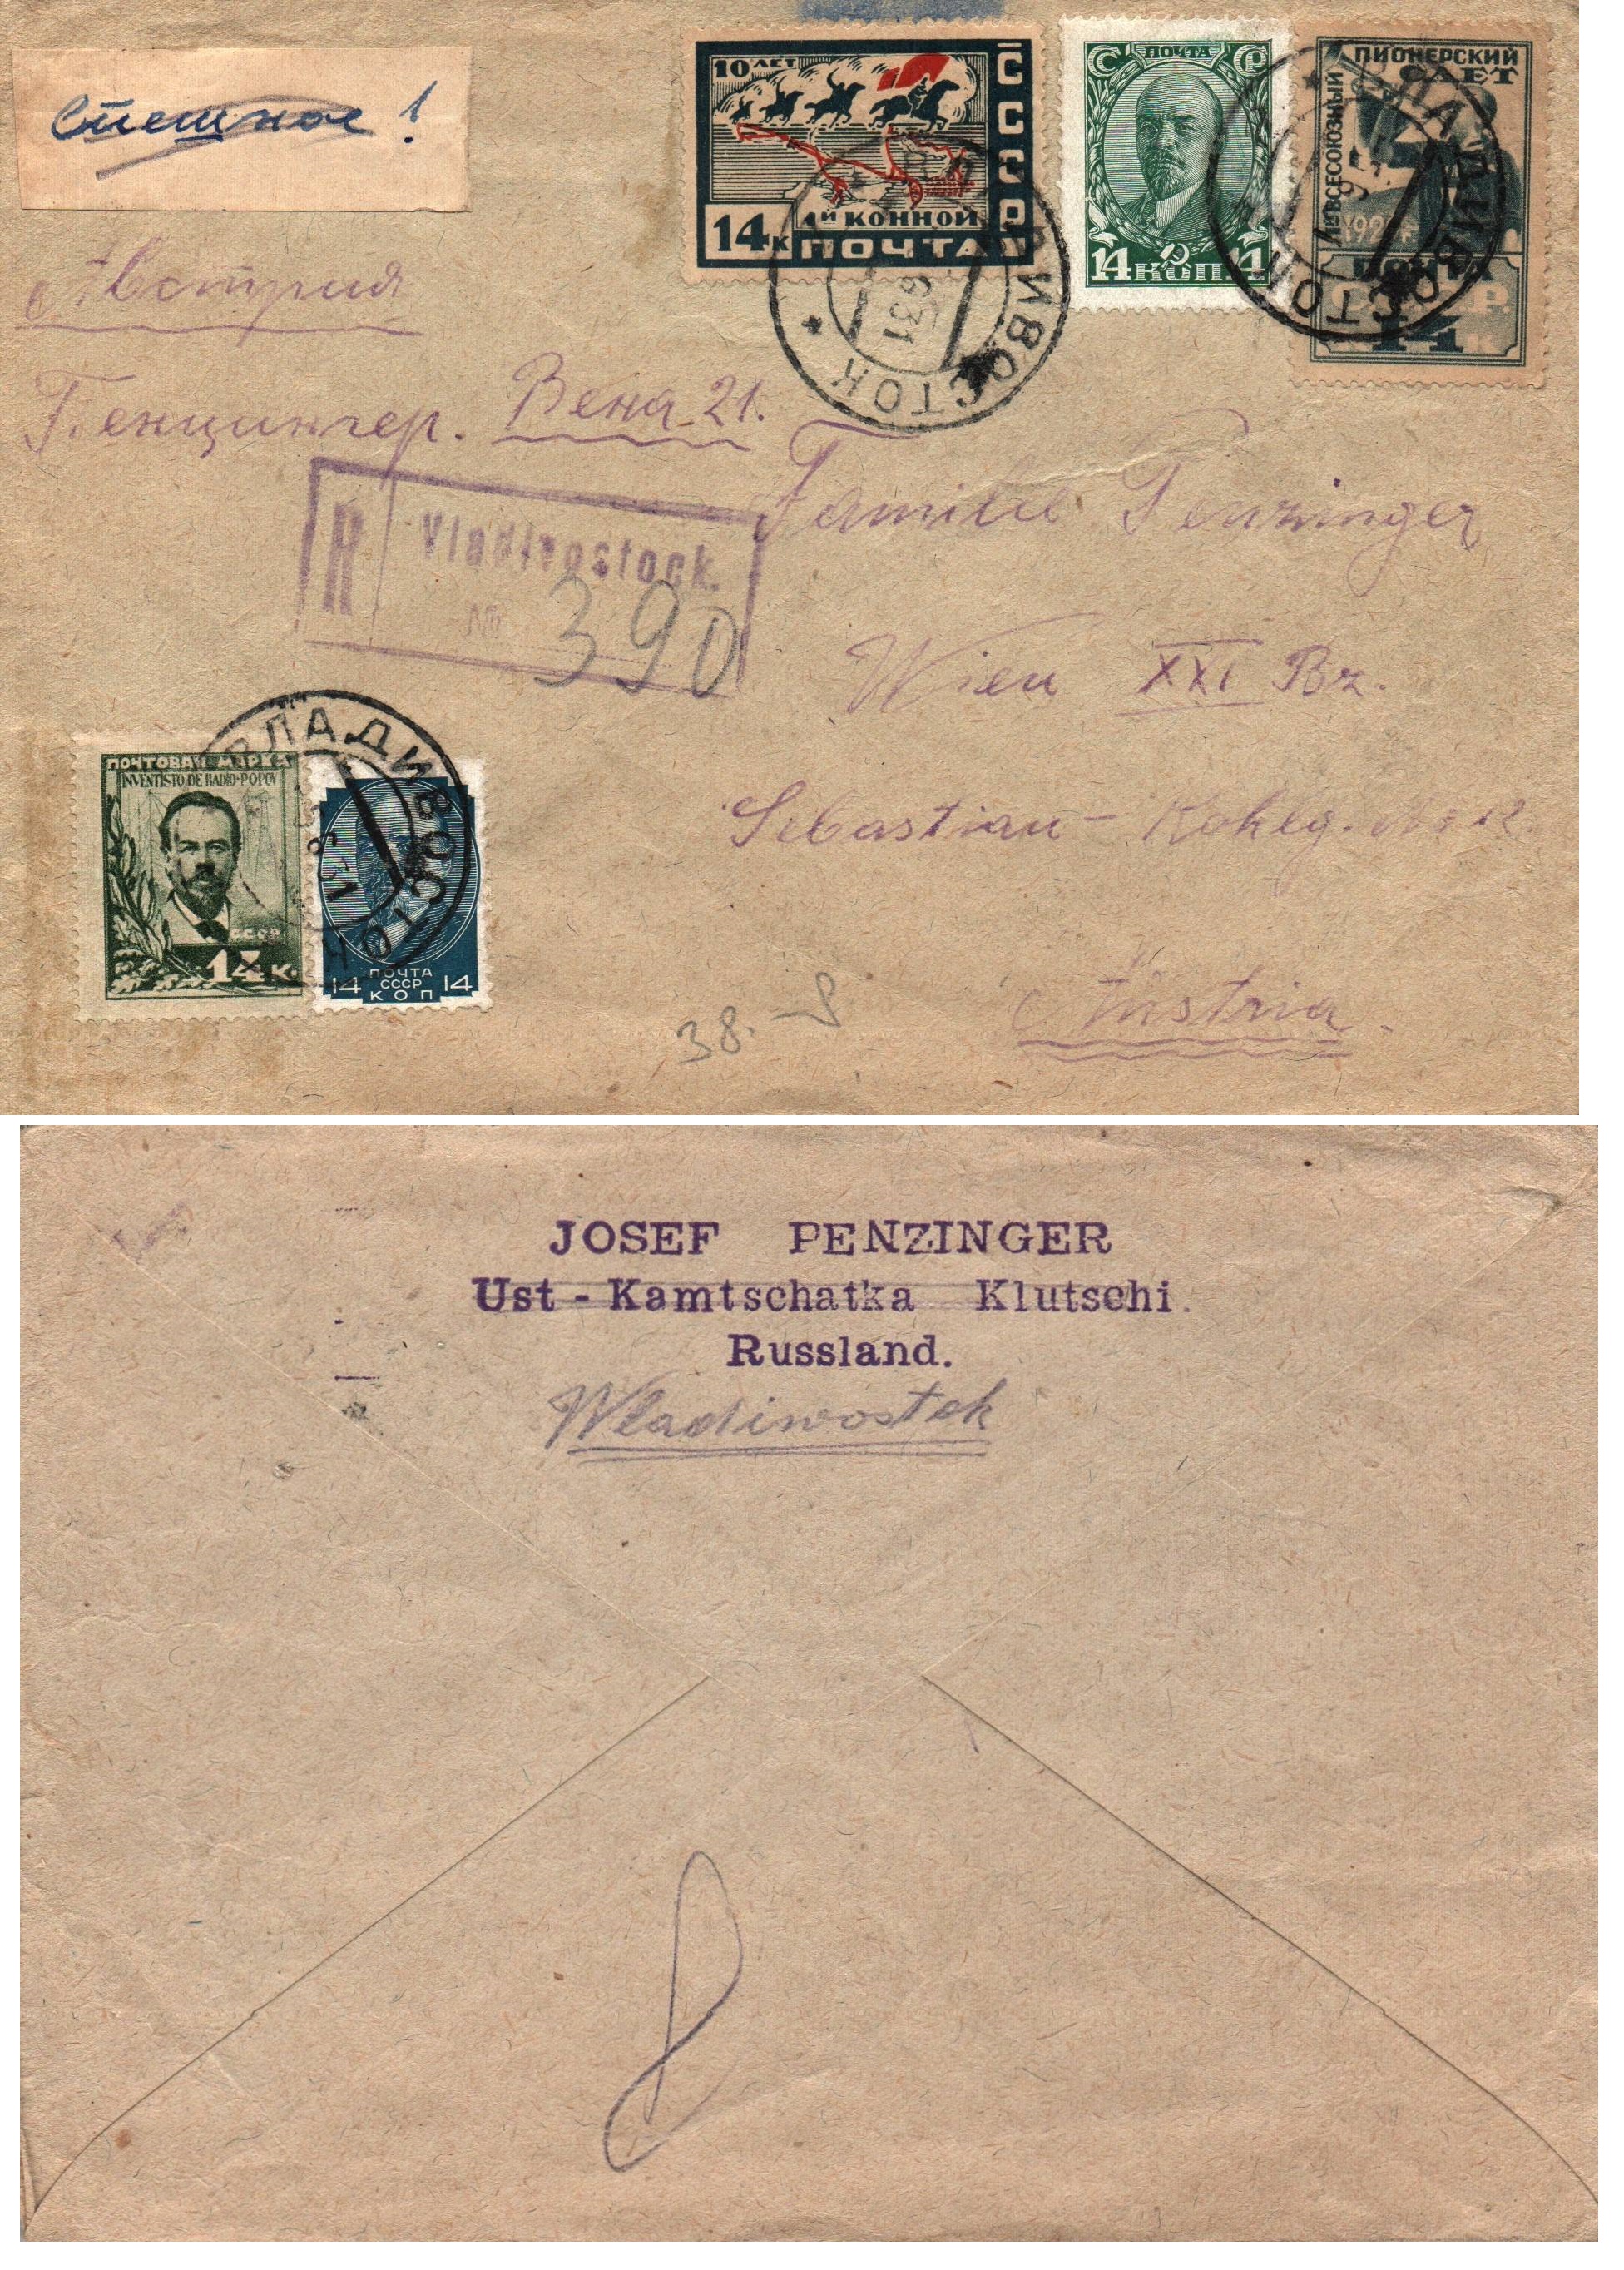 Спешное!
10 ЛЕТ
СССР
1й КОННОЙ
14 К ПОЧТА
С ПОЧТА Р
14 КОП. 14
ПИОНЕРСКИЙ
СЛЕТ
ВСЕСОЮЗНЫЙ
ПОЧТА
14
ВЛАДИВОСТОК
6 31
ВЛАДИВОСТОК
Австрия
Пенцингер. Вена 21.
Familie Penzinger
R Vladivostock.
№ 390
Wien XXI Bz.
Sebastian-Kohlg. №
Austria.
38.-
ПОЧТОВАЯ МАРКА
INVENTISTO DE RADIO-POPOV
СССР
14 К.
ПОЧТА
СССР
14 КОП 14
ВЛАДИВОСТОК
JOSEF PENZINGER
Ust - Kamtschatka Klutschi.
Russland.
Wladiwostok